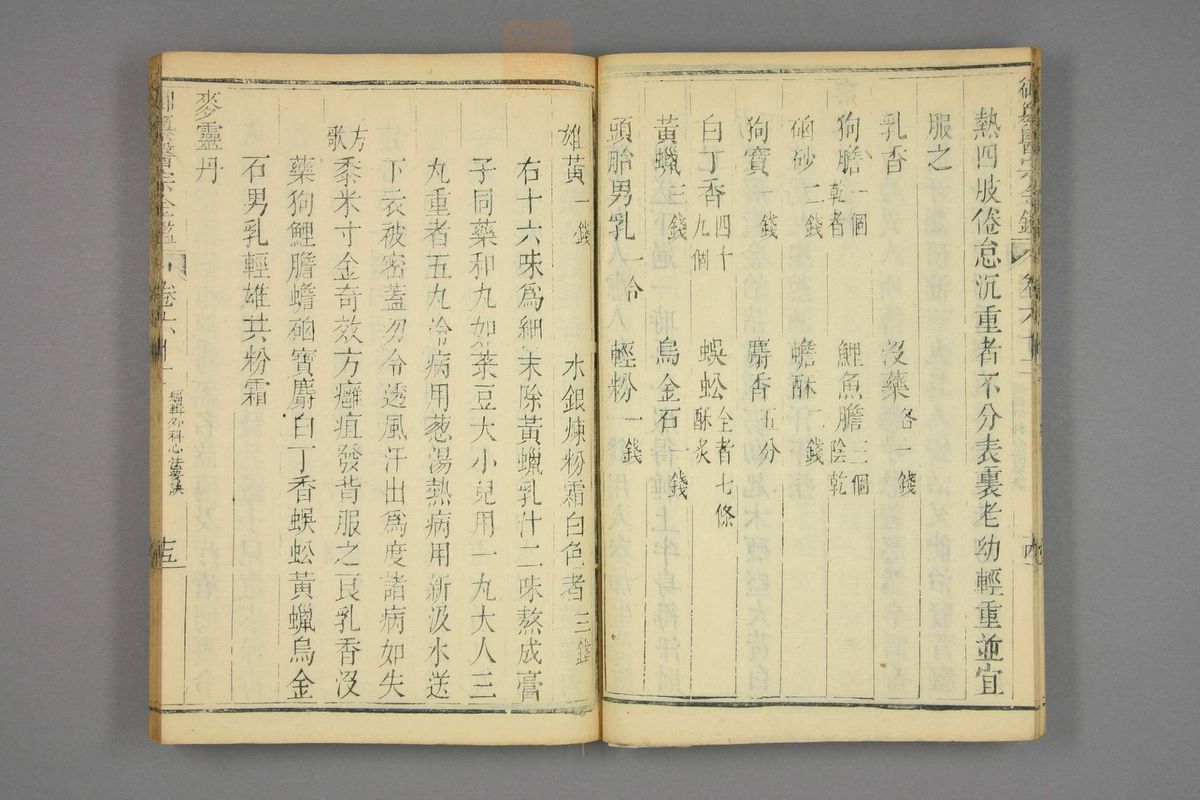 熱四肢倦怠沉重者不分表裏老幼輕重並宜
服之
乳香　沒藥各一錢
狗膽一個乾者　鯉魚膽三個陰乾
硇砂二錢　蟾酥二錢
狗寶一錢　麝香五分
白丁香四十九個　蜈蚣全者七條酥炙
黃蠟三錢　烏金石一錢
頭胎男乳一合　輕粉一錢
雄黃一錢　水銀煉粉霜白色者三錢
右十六味爲細末除黃蠟乳汁二味熬成膏
子同藥和丸如菉豆大小兒用一丸大人三
丸重者五丸冷病用葱湯熱病用新汲水送
下衣被密蓋勿令透風汗出爲度諸病如失
方歌　黍米寸金奇效方癰疽發背服之良乳香沒
藥狗鯉膽蟾硇寶麝白丁香蜈蚣黃蠟烏金
石男乳輕雄共粉霜
麥靈丹
御纂醫宗金鑑　卷六十二
編輯外科心法要訣